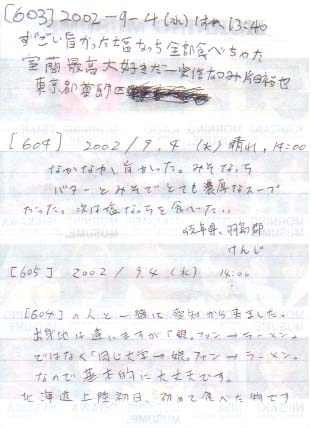 [603] 2002-9-4(水)はれ 13:40
すごい旨かった塩なっち全部食べちゃった
室蘭最高大好きだー安倍なつみ
東京都墨田区
[604] 2002/9.4(水)晴れ、14:00
なかなか、旨かった。みそなっち
バターとみそでとても濃厚なスープ
だった。次は塩なっちを食べたい。
岐阜県、羽島郡
けんじ
[605] 2002/9.4(水) 14:00
[604]の人と一緒に愛知から来ました。
出身地は違いますが「娘。ファン→ラーメン」
ではなく「同じ大学→娘。ファン→ラーメン」
なので基本的に大丈夫です。
北海道上陸初日、初めて食べた物です